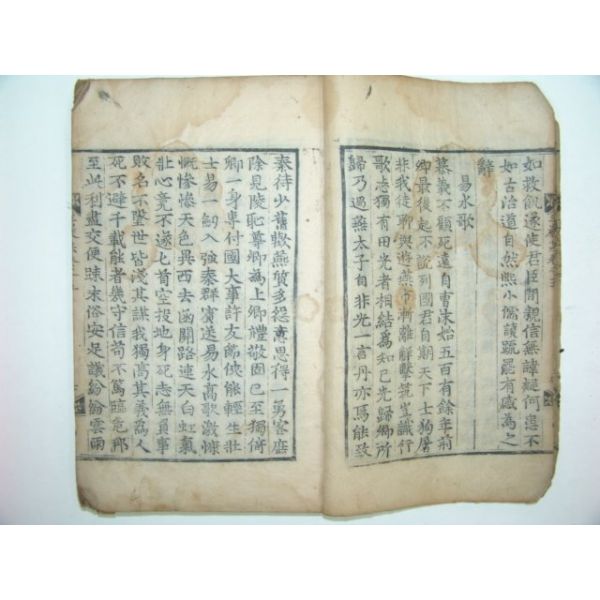 如救飢遂使君臣間親信無諱疑何患不
如古治道自然熙小儒讀疏罷有感為之
辭
易水歌
慕義不顧死遠自曹末始五百有餘年荊
卿最後起不說列國君自期天下士狗屠
非我徒聊與游燕市漸離解擊筑豈識行
歌志獨有田光者相結為知己光歸卿所
歸乃過燕太子自非光一言丹亦焉能致
秦待少舊歡燕質多怨恚思得一勇客庶
除見陵恥尊卿為上卿禮敬固已至獨倚
卿一身專付國大事許友節俠能輕生壯
士易一刎入強秦群賓送易水高歌激慷
慨慘慘天色異西去函關路連天白虹氣
壯心竟不遂匕首空投地身死志無負事
敗名不墜世皆淺其謀我獨高其義為人
死不避千載能者幾守信苟不篤臨危那
至此利盡交便踈末俗安足議紛紛雲雨